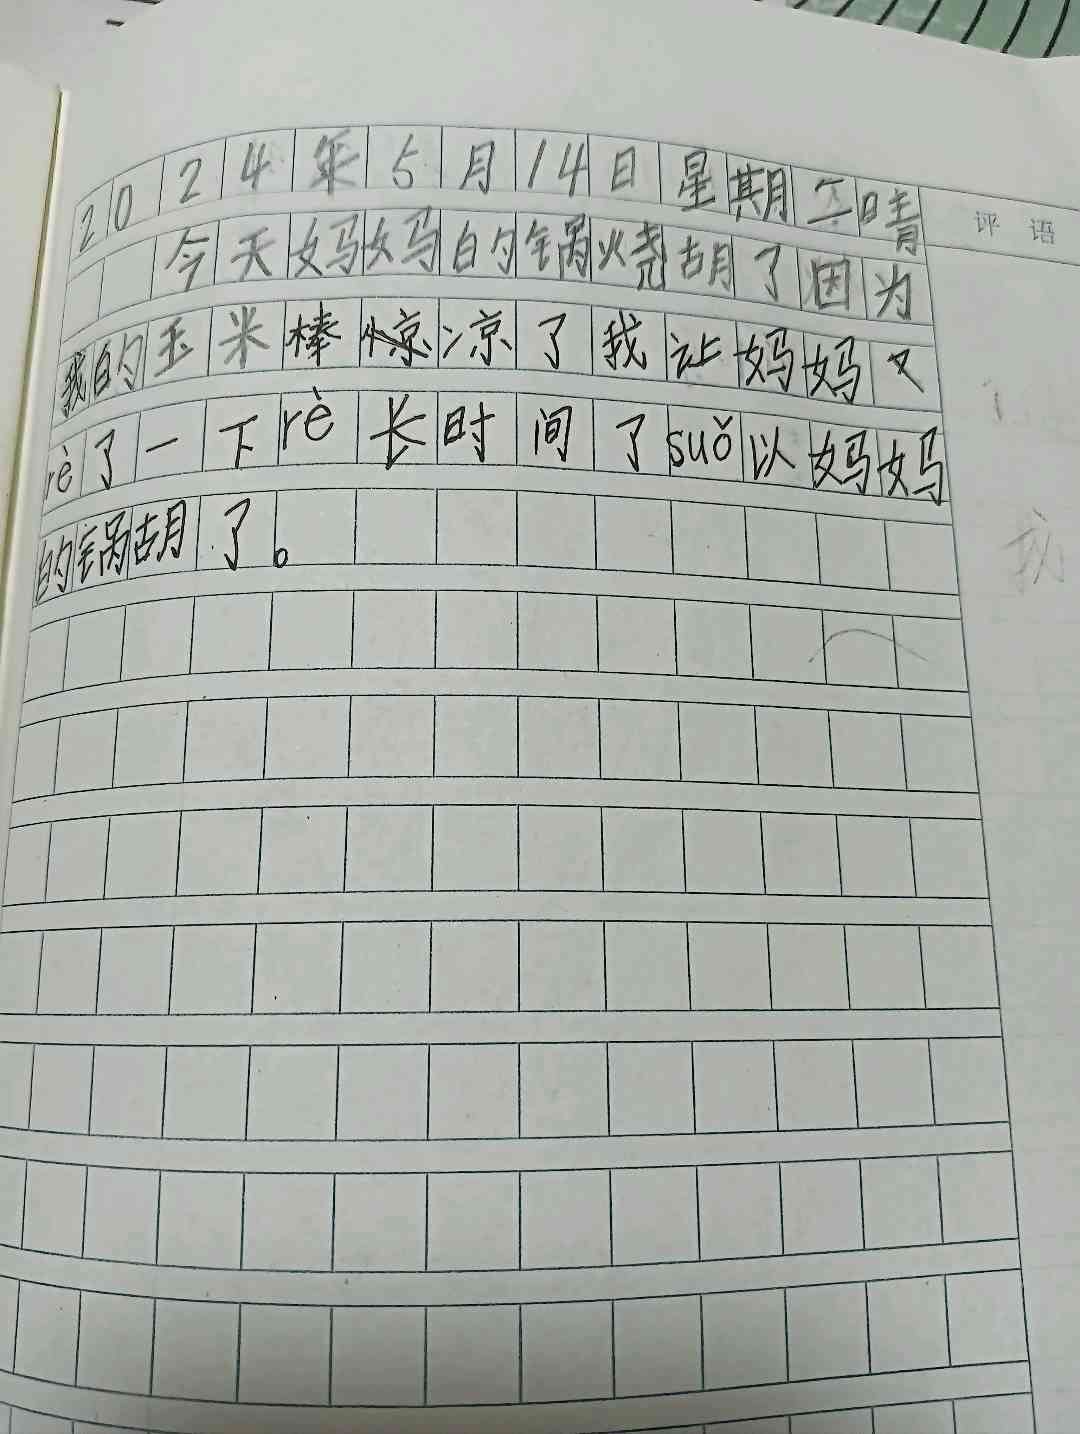 2024年5月14日星期二晴
评语
今天妈妈的锅烧胡了因为
我的玉米棒凉了我让妈妈又
rè了一下rè长时间了suǒ以妈妈
的锅胡了。